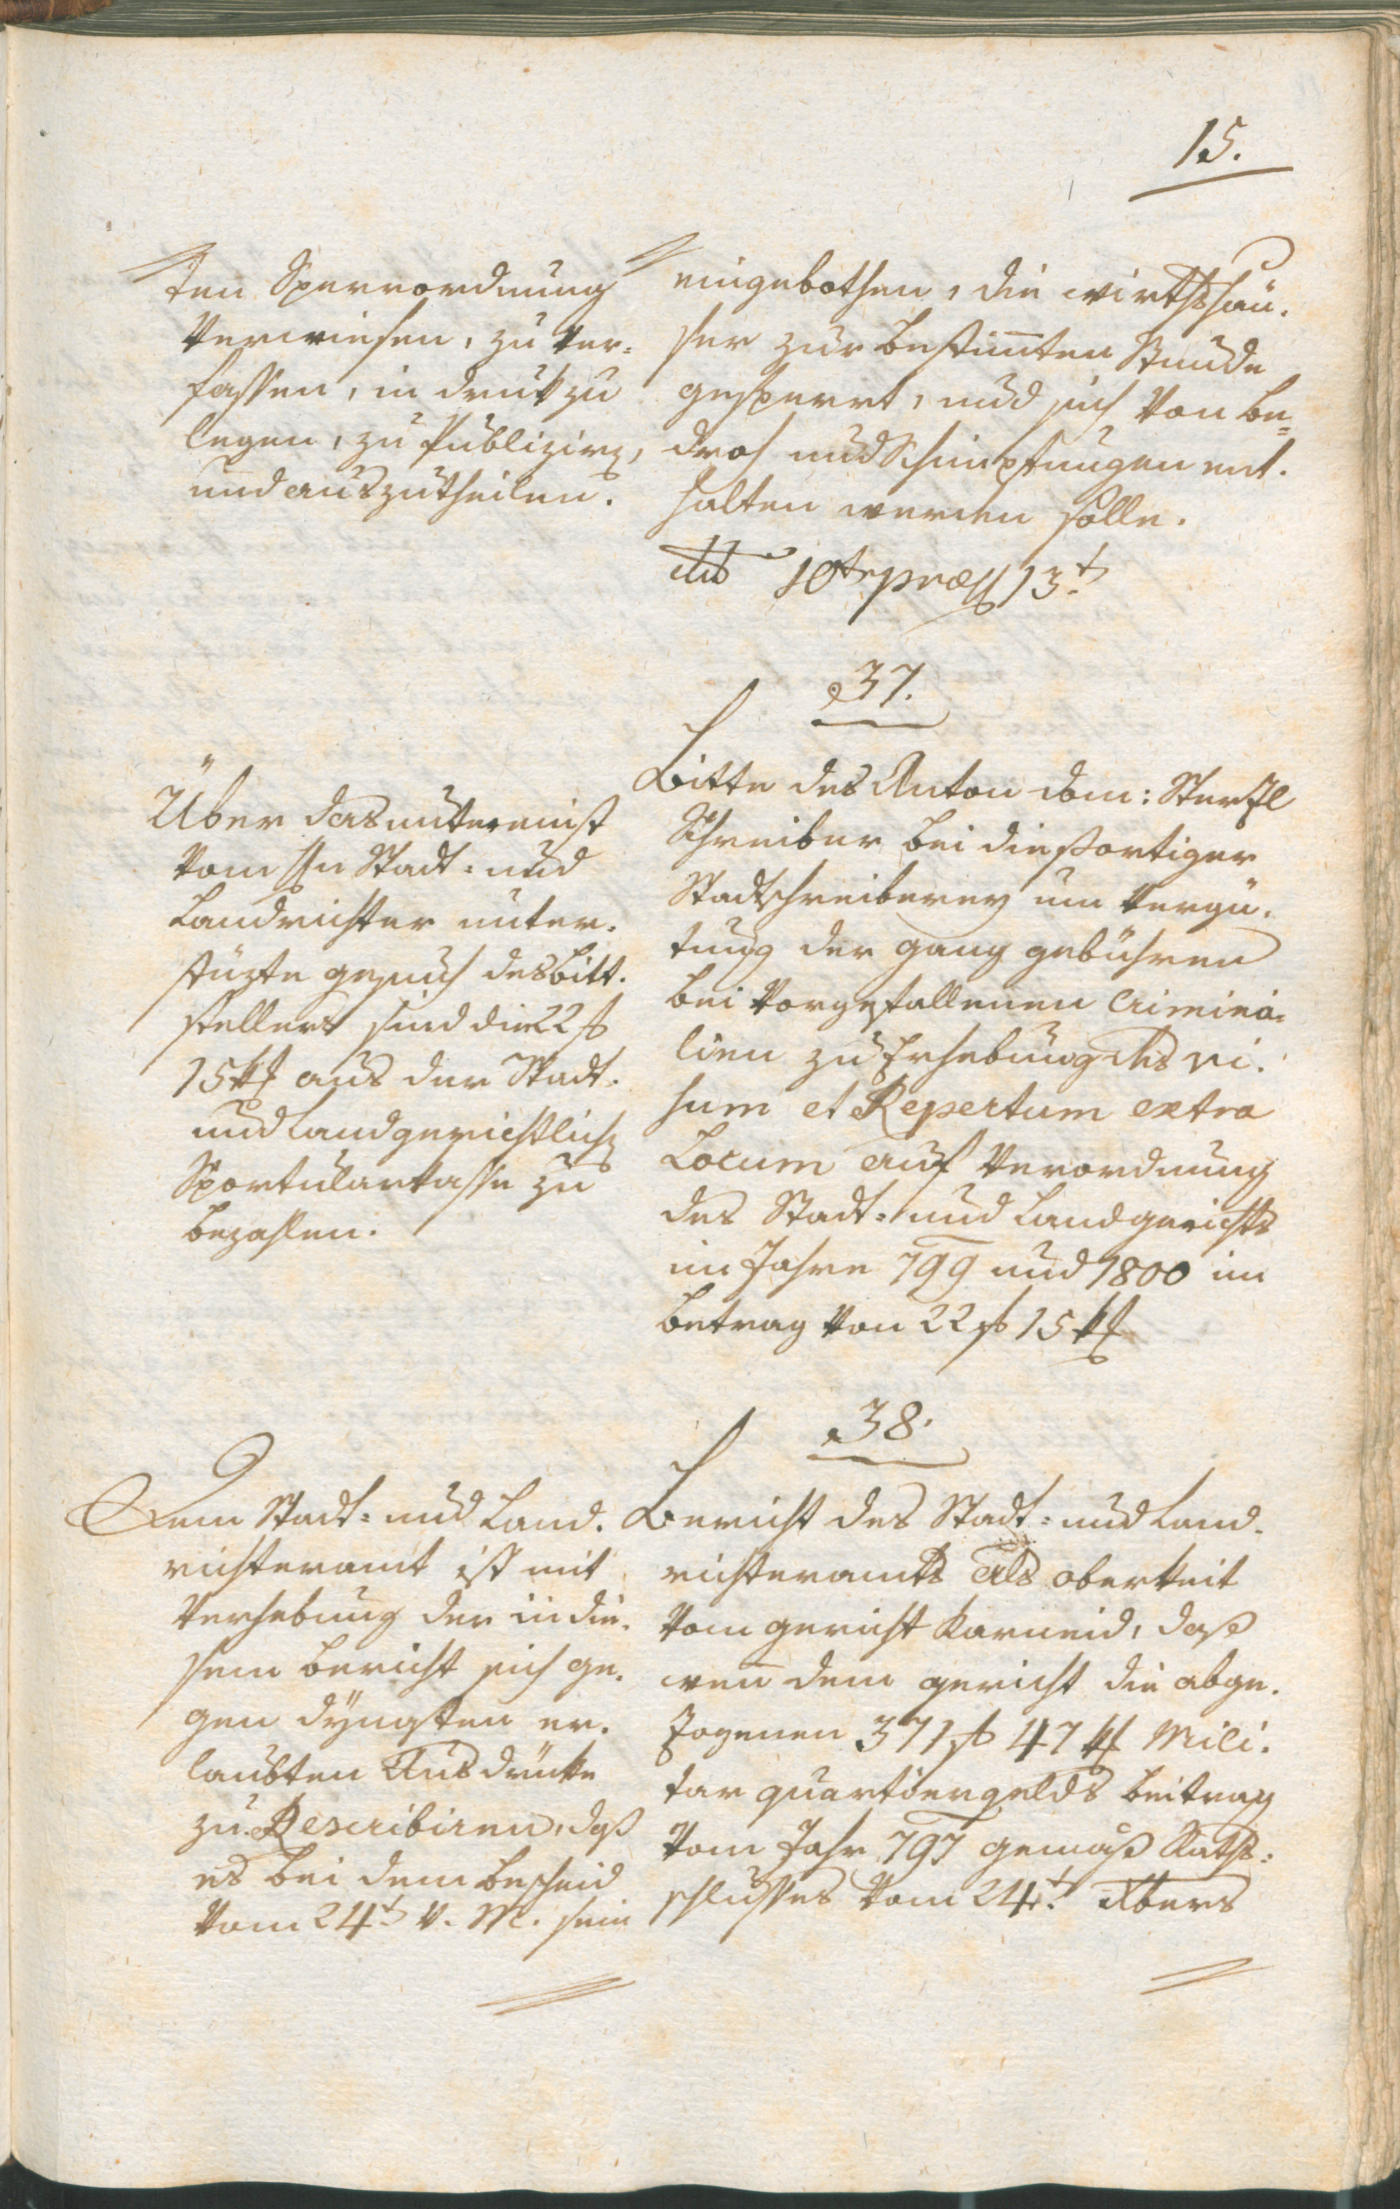 15.
ten Sperrordnung
verwiesen, zu ver-
fassen, in druk zu
legen, zu Publiziren,
und auszutheilen.
eingebothen, die wirthshäu-
ser zur bestimten Stunde
gesperrt, und sich von be-
droh und Schimpfungen ent-
halten werden solle.
dto 10t praes 13t.
37.
Über das
vom Hn Stadt- und
Landrichter unter-
stüzte gesuch des Bitt-
stellers sind die 22 f
15 kr aus der Stadt-
und Landgerichtlichen
Sportularkasse zu
bezahlen.
Bitte des Anton Dom: Sterzl
Schreiber bei diesortiger
Stadtschreiberey um vergü-
tung der gang gebühren
bei vorgefallenen Crimina-
lien zu Erhebung des vi-
sum et Repertum extra
Locum auf verordnung
des Stadt- und Landgerichts
im Jahre 799 und 1800 im
betrag von 22 f 15 kr
38.
Dem Stadt- und Land-
richteramt ist mit
Verhebung der in die-
sem bericht sich ge-
gen
laubten Ausdrücke
zu Rescribiren, daß
es bei dem bescheid
vom 24t v. M. sein
Bericht des Stadt- und Land-
richteramts als oberkeit
vom gericht Karneid, daß
wen dem gericht die abge-
zogenen 371 f 47 kr Mili-
tar quartiergelds beitrag
vom Jahr 797 gemäß Raths-
schlusses vom 24t. Xbers